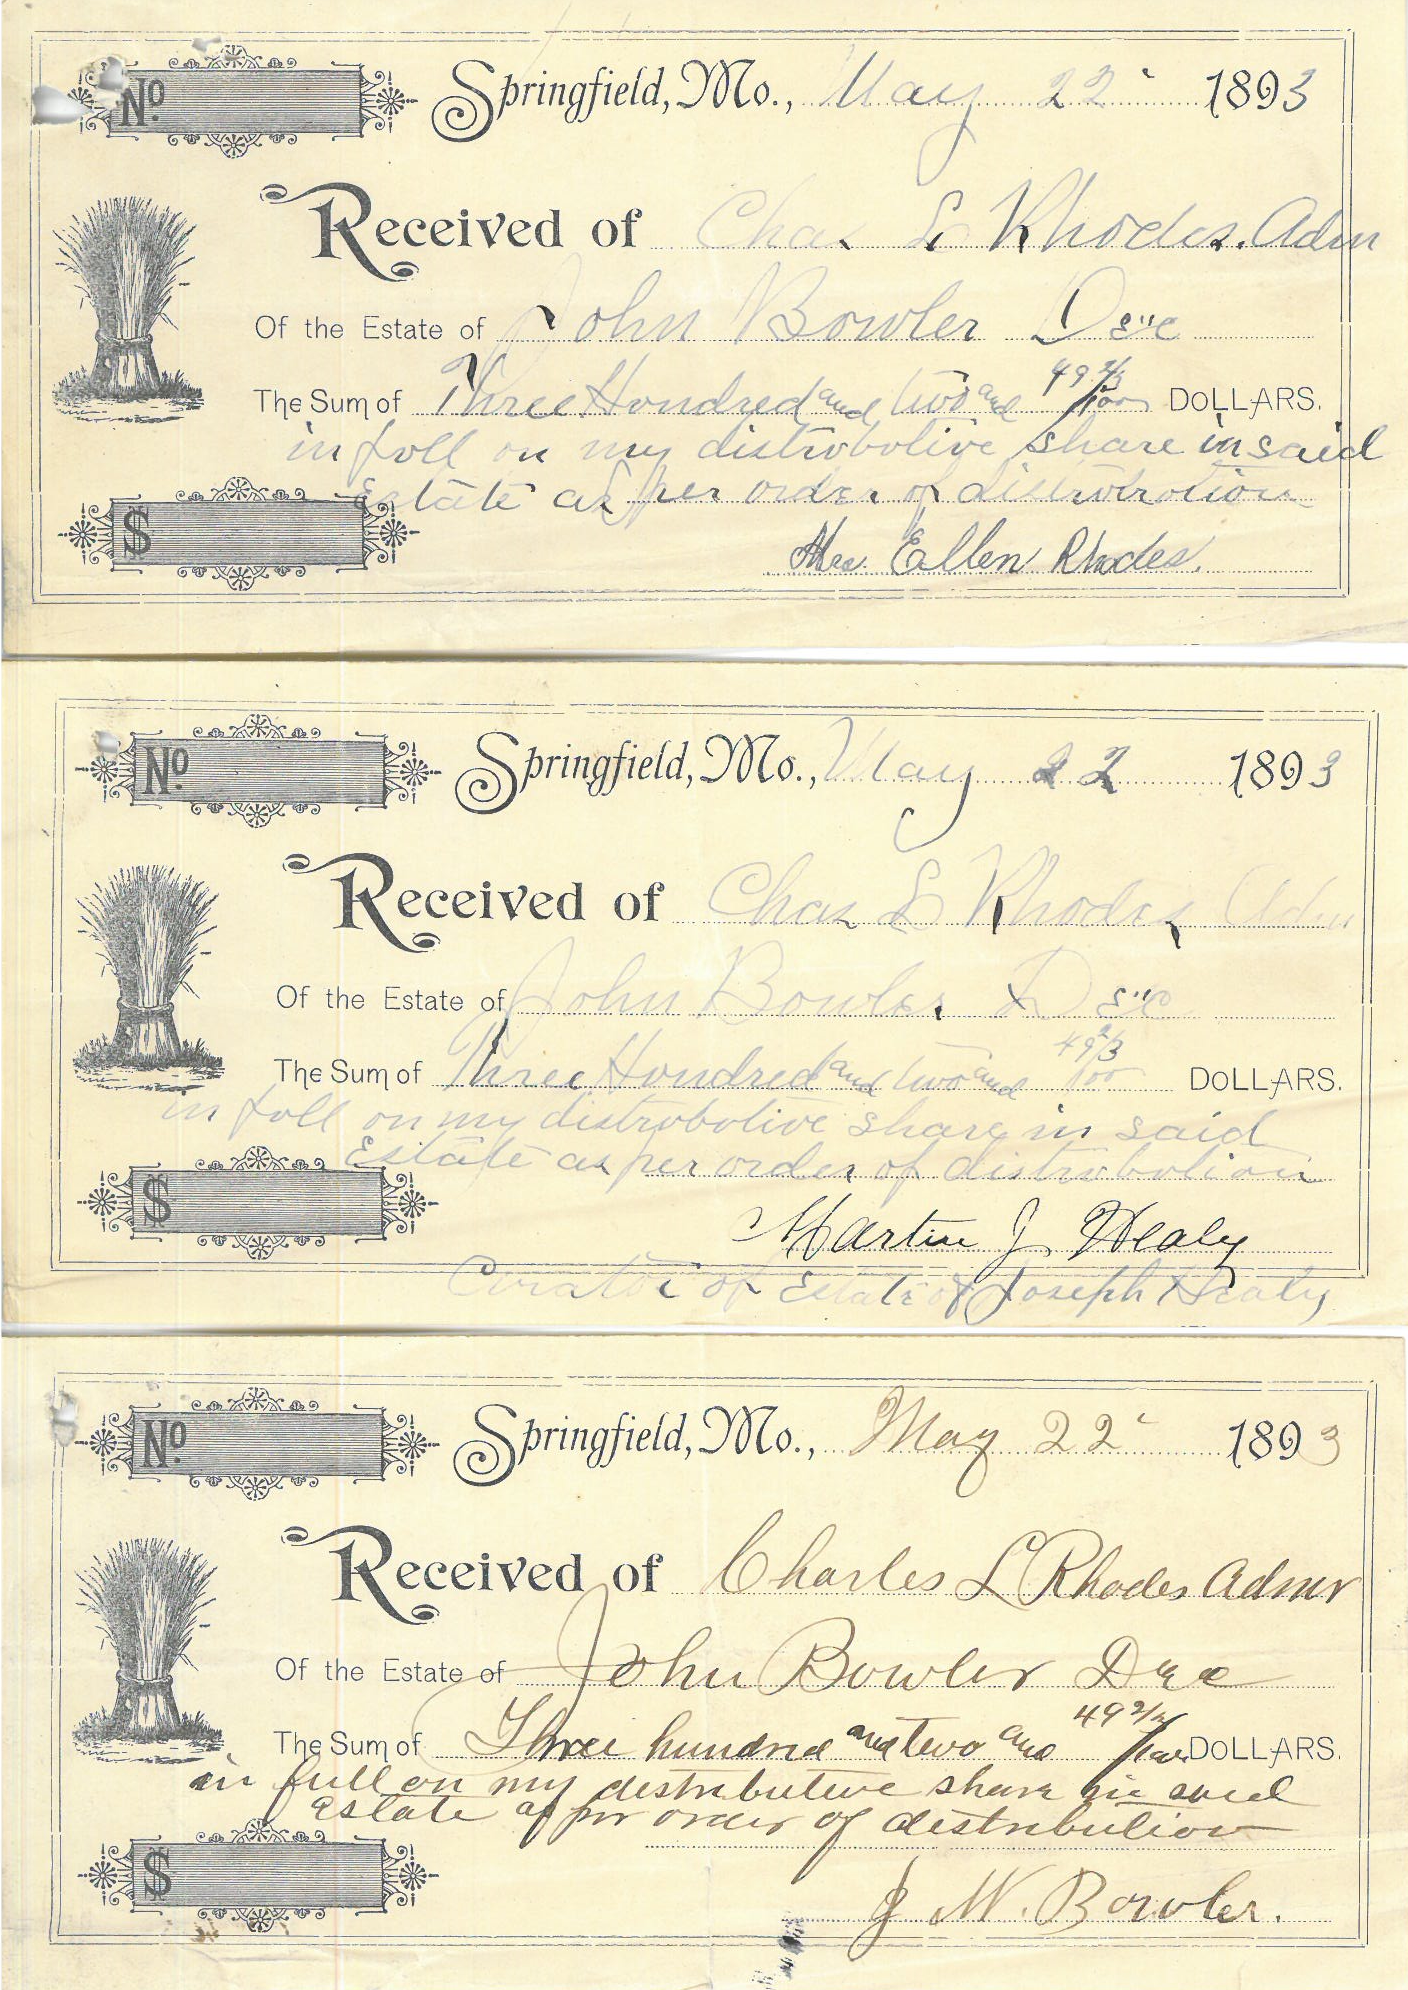 No. Springfield, Mo., May 22 1893
Received of Chas L Rhodes. Adm
Of the Estate of John Bowler Dec
The Sum of Three Hondred and two and 49 2/3/100 DOLLARS.
in foll on my distrobotive share in said
Estate as per order of distrobotion
$
Mrs. Ellen Rhodes.
No. Springfield, Mo., May 22 1893
Received of Chas L Rhodes Adm
Of the Estate of John Bowler Dec
The Sum of Three Hondred and two and 49 2/3/100 DOLLARS.
in foll on my distrobotive share in said
Estate as per order of distrobotion
$
Martin J. Healy
Curator of Estate of Joseph Healy
No. Springfield, Mo., May 22 1893
Received of Charles L Rhodes Admr
Of the Estate of John Bowler Dec
The Sum of Three hundred and two and 49 2/3/100 DOLLARS.
in full on my distributive share in said
Estate as per order of distribution
$
J W. Bowler.